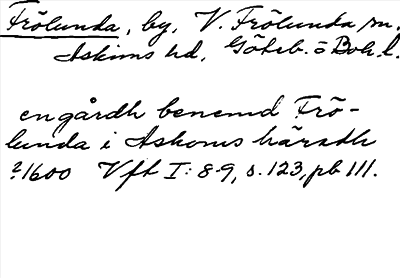 Frölunda, by, V. Frölunda sn.
Askims hd, Göteb. o Boh. l.
en gårdh benemd Frö-
lunda i Askoms häradh
?1600 Vft I: 8-9, s. 123, pb 111.